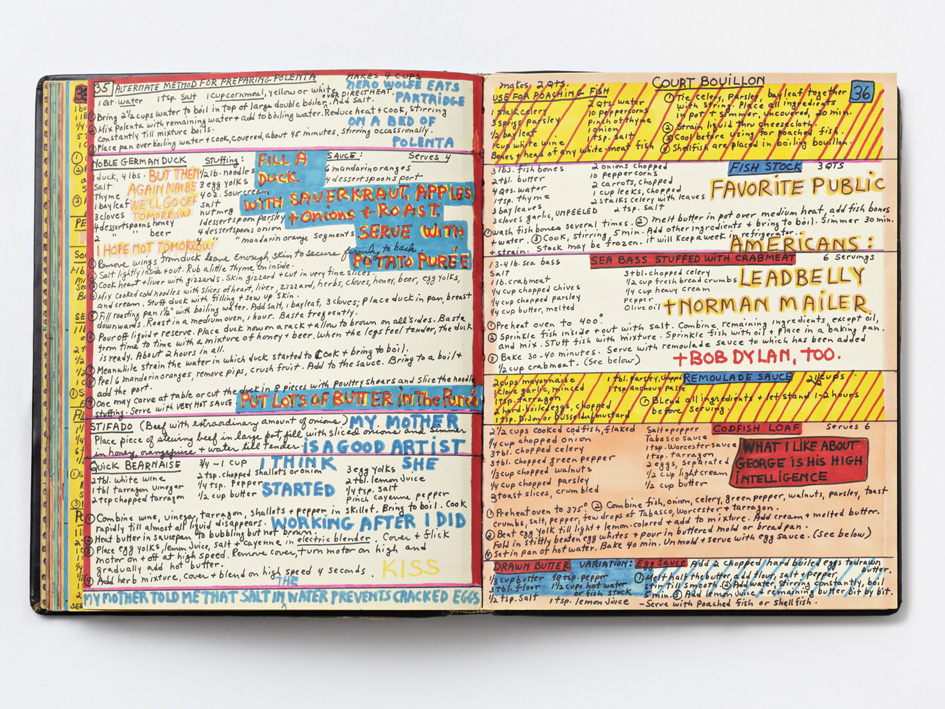 35 ALTERNATE METHOD FOR PREPARING POLENTA MAKES 4 CUPS
1 Qt. water 1 tsp. Salt 1 cup cornmeal, yellow or white
NERO WOLFE EATS
PARTRIDGE
ON A BED OF
POLENTA
① Bring 2½ cups water to boil in top of large double boiler, over direct heat. Add salt.
② Mix polenta with remaining water + add to boiling water. Reduce heat + cook, stirring
constantly till mixture boils.
③ Place pan over boiling water + cook, covered, about 45 minutes, stirring occasionally.
NOBLE GERMAN DUCK Stuffing: SAUCE: Serves 4
duck, 4 lbs.
Salt
Thyme
1 bay leaf
3 cloves
4 dessertspoons honey
2 " " beer
BUT THEN
AGAIN MAYBE
WE'LL GO OFF
TOMORROW
I HOPE NOT TOMORROW
½ lb. noodles
3 egg yolks
4 oz. sour cream
Salt
nutmeg
1 dessertspoon parsley
1 dessertspoons onion
mandarin orange segments
6 mandarin oranges
4 dessertspoons port
FILL A
DUCK
WITH SAUERKRAUT, APPLES
+ Onions + ROAST.
SERVE WITH
POTATO PURÉE
① Remove wings from duck leave enough skin to secure
① Salt lightly inside + out. Rub a little thyme on inside.
② Cook heart + liver with gizzards. Skin gizzard + cut in very fine slices.
③ Mix cooked cold noodles with slices of heart, liver, gizzard, herbs, cloves, honey, beer, egg yolks,
and cream. Stuff duck with filling + sew up skin.
④ Fill roasting pan 1½" with boiling water. Add salt, bay leaf, 3 cloves; place duck in pan, breast
downwards. Roast in medium oven, 1 hour. Baste frequently.
⑤ Pour off liquid + reserve. Place duck now on a rack + allow to brown on all sides. Baste
from time to time with a mixture of honey + beer. When the legs feel tender, the duck
is ready. About 2 hours in all.
⑥ Meanwhile strain the water in which duck started to cook + bring to boil.
⑦ Peel 6 mandarin oranges, remove pips, crush fruit. Add to the sauce. Bring to a boil +
add the port.
⑧ One may carve at table or cut the duck in 8 pieces with poultry shears and slice the noodle
stuffing. Serve with VERY HOT SAUCE
PUT LOTS OF BUTTER IN The Purée
STIFADO (Beef with extraordinary amount of onions)
Place piece of stewing beef in large pot, fill with sliced onions and simmer
in honey, orange juice + water till tender.
MY MOTHER
IS A GOOD ARTIST
I THINK SHE
STARTED
WORKING AFTER I DID
QUICK BEARNAISE
2 tbl. white wine
1 tbl tarragon vinegar
2 tsp chopped tarragon
¾ - 1 CUP
2 tsp. chopped shallots or onion
¼ tsp. Pepper
½ cup butter
3 egg yolks
2 tbl. lemon Juice
¼ tsp. salt
pinch Cayenne pepper
① Combine wine, vinegar, tarragon, shallots + pepper in skillet. Bring to boil. Cook
rapidly till almost all liquid disappears.
② Heat butter in saucepan to bubbling but not brown.
③ Place egg yolks, lemon Juice, salt + cayenne in electric blender. Cover + flick
motor on + off at high speed. Remove cover, turn motor on high and
gradually add hot butter.
④ Add herb mixture, cover + blend on high speed 4 seconds.
KISS
MY MOTHER TOLD ME THAT SALT IN THE WATER PREVENTS CRACKED EGGS
makes 2 Qts. COURT BOUILLON 36
USE FOR POACHING FISH
3 sprigs parsley
½ bay leaf
1 cup white wine
Bones + head of any white meat fish
2 Qts. water
10 peppercorns
Pinch of thyme
1 onion
1 tsp. salt
① Tie celery, parsley, bay leaf together
with string. Place all ingredients
in pot + simmer, uncovered, 30 min.
② Strain liquid thru cheesecloth.
③ Cool before using for poached fish.
④ Shellfish are placed in boiling bouillon.
FISH STOCK 3 QTS
3 lbs. fish bones
2 tbl. butter
4 Qts. water
1 tsp. thyme
3 bay leaves
2 cloves garlic, UNPEELED
2 onions chopped
10 peppercorns
2 carrots, chopped
1 cup leeks, chopped
2 stalks celery with leaves
2 tsp. salt
FAVORITE PUBLIC
AMERICANS:
LEADBELLY
+ NORMAN MAILER
+ BOB DYLAN, TOO.
① Wash fish bones several times. ② melt butter in pot over medium heat, add fish bones
+ water. ③ Cook, stirring 5 min. Add other ingredients + bring to boil. Simmer 30 min.
+ strain. Stock may be frozen. it will Keep a week in refrigerator.
SEA BASS STUFFED WITH CRABMEAT 6 Servings
1 3-4 lb. sea bass
Salt
1 lb. crabmeat
¼ cup chopped chives
¼ cup chopped parsley
¼ cup butter, melted
3 tbl. chopped celery
½ cup fresh bread crumbs
¼ cup heavy cream
Pepper
Olive oil
① Preheat oven to 400°
② Sprinkle fish inside + out with salt. Combine remaining ingredients except oil,
and mix. Stuff fish with mixture. Sprinkle fish with oil + place in a baking pan.
③ Bake 30-40 minutes. Serve with remoulade sauce to which has been added
½ cup crabmeat. (See below)
REMOULADE SAUCE 2½ cups
2 cups mayonnaise
1 clove garlic, minced
1 tsp. tarragon
2 hard boiled eggs, chopped
1 tsp. Dijon or Dusseldorf mustard
1 tbl. parsley
1 tsp anchovy paste
① Blend all ingredients + let stand 1-2 hours
before serving.
CODFISH LOAF Serves 6
2½ cups cooked codfish, flaked
¼ cup chopped onion
3 tbl. chopped celery
3 tbl. chopped green pepper
½ cup chopped walnuts
¼ cup chopped parsley
3 toast slices, crumbled
Salt + pepper
Tabasco sauce
1 tsp. Worcester sauce
1 tsp. tarragon
2 eggs, separated
½ cup light cream
½ cup butter
WHAT I LIKE ABOUT
GEORGE IS HIS HIGH
INTELLIGENCE
① Preheat oven to 375° ② Combine fish, onion, celery, green pepper, walnuts, parsley, toast
crumbs, salt, pepper, few drops of Tabasco, Worcester + tarragon.
③ Beat egg yolk till light + lemon-colored + add to mixture. Add cream + melted butter.
Fold in stiffly beaten egg whites + pour in buttered mold or bread pan.
④ Set in pan of hot water. Bake 40 min. Unmold + serve with egg sauce. (See below)
DRAWN BUTTER VARIATION: Egg Sauce Add 2 chopped hard boiled eggs to drawn
butter.
⅓ cup butter
3 tbl. flour
½ tsp. Salt
⅛ tsp. pepper
1½ cups hot water
or fish stock
1 tsp. lemon Juice
① Melt half the butter, add flour, salt + pepper,
stir till smooth. ② Add water, stirring constantly, boil
5 min. ③ Add lemon Juice + remaining butter bit by bit.
- Serve with Poached fish or shellfish.